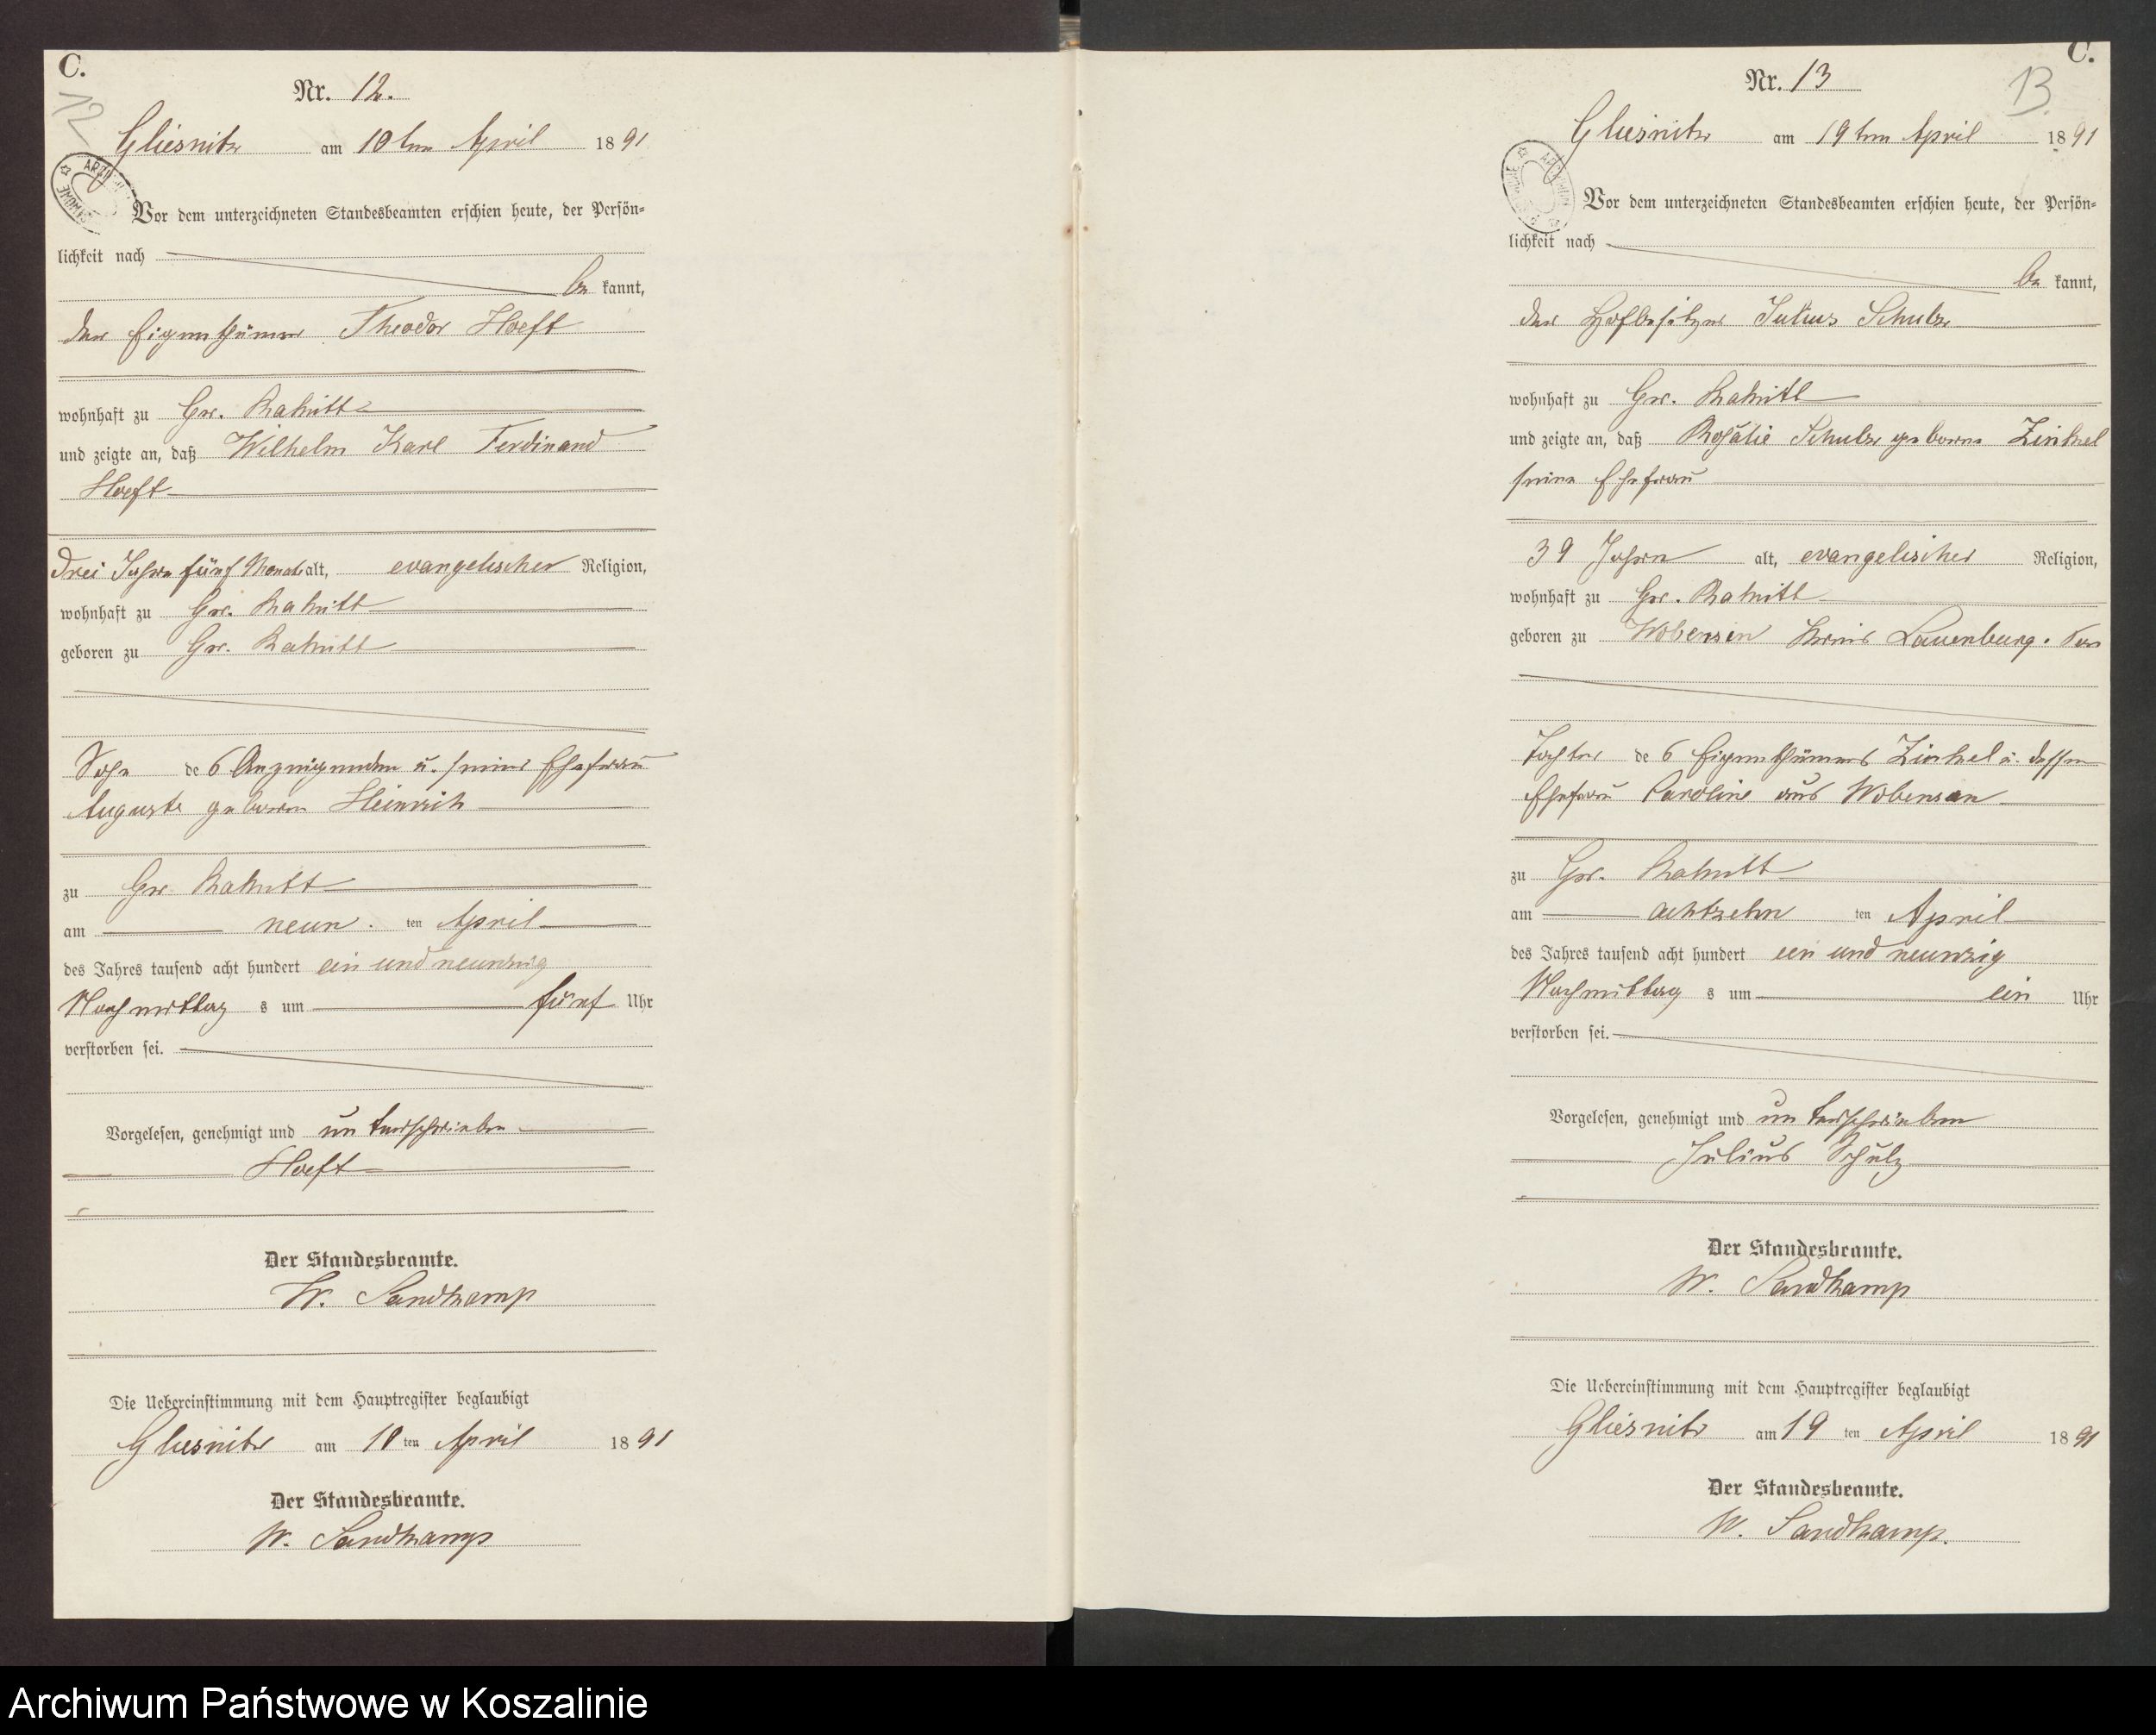 C.
12
Nr. 12.
Gliesnitz am 10ten April 1891
Vor dem unterzeichneten Standesbeamten erschien heute, der Persön-
lichkeit nach
be kannt,
der Eigenthümer Theodor Hoeft
wohnhaft zu Gr. Rakitt
und zeigte an, daß Wilhelm Karl Ferdinand
Hoeft
drei Jahre fünf Monat alt, evangelischer Religion,
wohnhaft zu Gr. Rakitt
geboren zu Gr. Rakitt
Sohn des Anzeigenden u. seiner Ehefrau
Auguste geborne Heinrich
zu Gr. Rakitt
am neun. ten April
des Jahres tausend acht hundert ein und neunzig
Nachmittag s um fünf Uhr
verstorben sei.
Vorgelesen, genehmigt und unterschrieben
Hoeft
Der Standesbeamte.
W. Sandkamp
Die Uebereinstimmung mit dem Hauptregister beglaubigt
Gliesnitz am 10 ten April 1891
Der Standesbeamte.
W. Sandkamp
C.
13
Nr. 13
Gliesnitz am 19ten April 1891
Vor dem unterzeichneten Standesbeamten erschien heute, der Persön-
lichkeit nach
be kannt,
der Hofbesitzer Julius Schulz
wohnhaft zu Gr. Rakitt
und zeigte an, daß Rosalie Schulz geborne Zinkel
seine Ehefrau
39 Jahre alt, evangelischer Religion,
wohnhaft zu Gr. Rakitt
geboren zu Wobensin Kreis Lauenburg.
Tochter des Eigenthümers Zinkel u. dessen
Ehefrau Caroline aus Wobensen
zu Gr. Rakitt
am achtzehn ten April
des Jahres tausend acht hundert ein und neunzig
Nachmittag s um ein Uhr
verstorben sei.
Vorgelesen, genehmigt und unterschrieben
Julius Schulz
Der Standesbeamte.
W. Sandkamp
Die Uebereinstimmung mit dem Hauptregister beglaubigt
Gliesnitz am 19 ten April 1891
Der Standesbeamte.
W. Sandkamp.
Archiwum Państwowe w Koszalinie